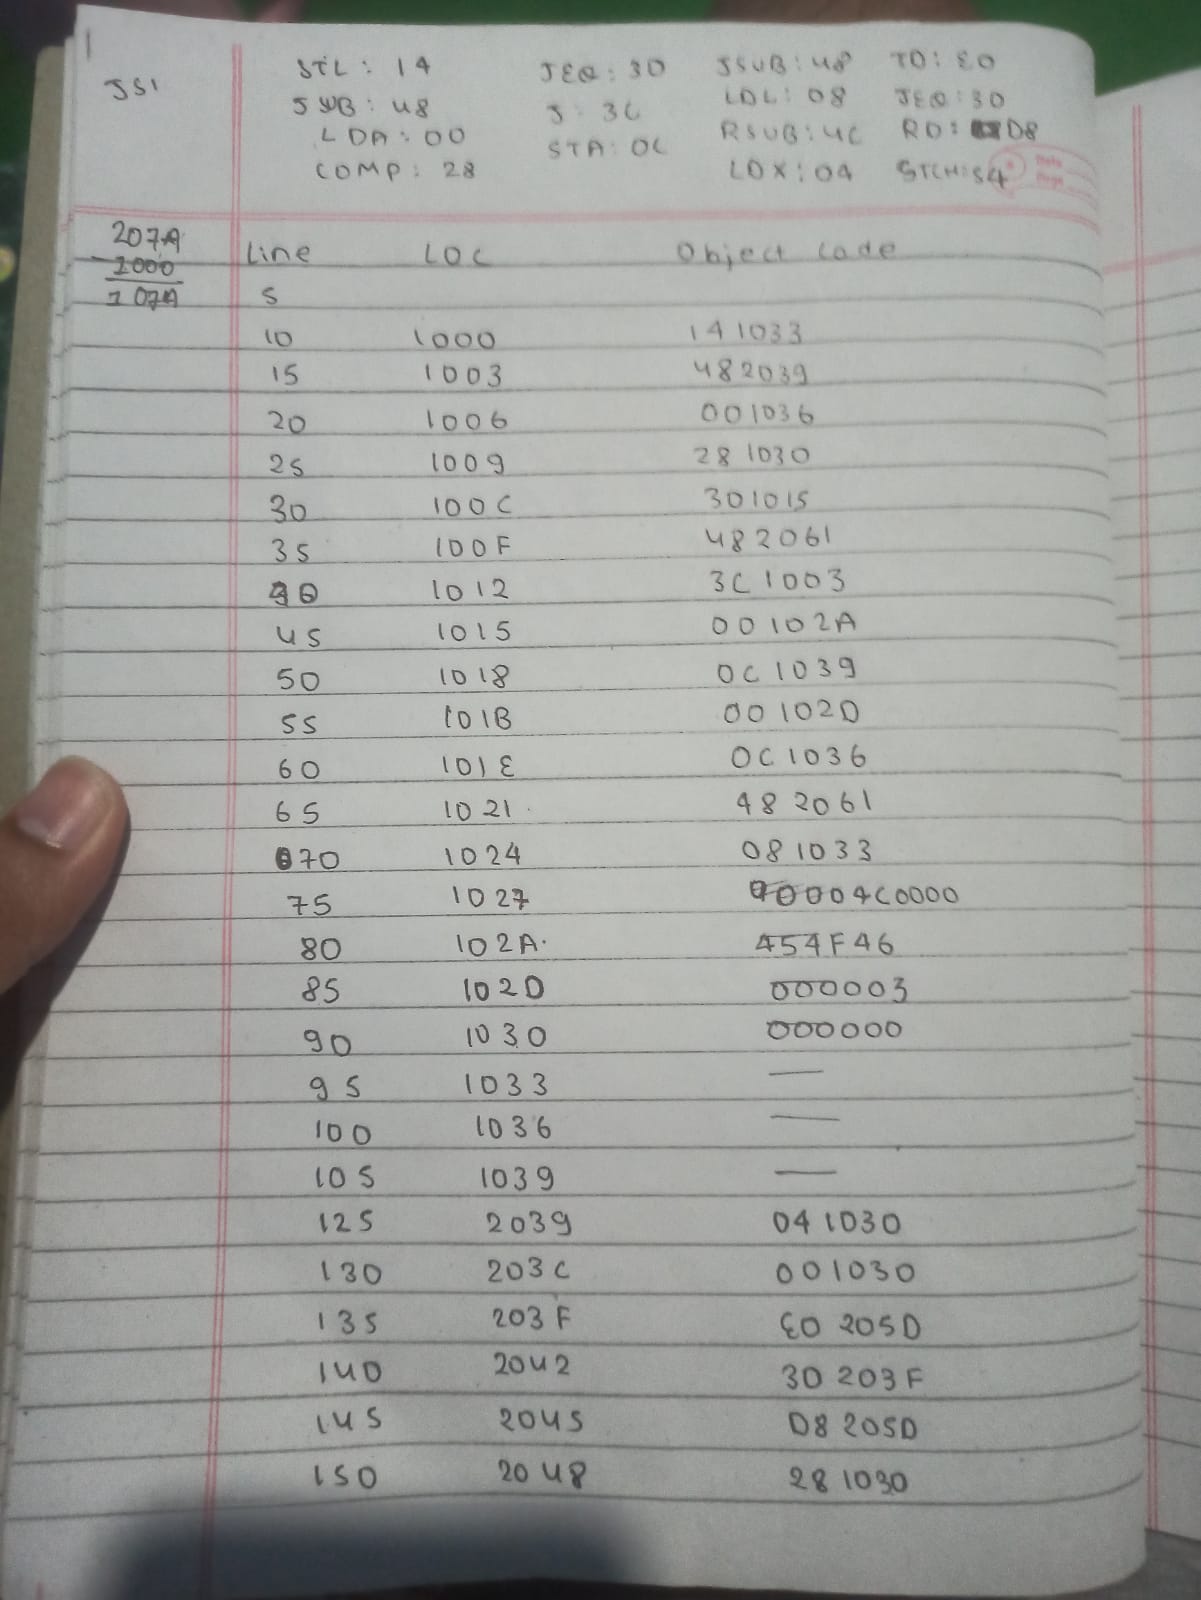 JSI
STL : 14 JEQ : 30 JSUB : 48 TD : E0
JSUB : 48 J : 3C LDL : 08 JEQ : 30
LDA : 00 STA : 0C RSUB : 4C RD : D8
COMP : 28 LDX : 04 STCH : 54
Date
Page
207A
- 1000
107A
Line LOC Object Code
5
10 1000 141033
15 1003 482039
20 1006 001036
25 1009 281030
30 100C 301015
35 100F 482061
40 1012 3C1003
45 1015 00102A
50 1018 0C1039
55 101B 00102D
60 101E 0C1036
65 1021 482061
70 1024 081033
75 1027 4C0000
80 102A 454F46
85 102D 000003
90 1030 000000
95 1033 —
100 1036 —
105 1039 —
125 2039 041030
130 203C 001030
135 203F E0 205D
140 2042 30 203F
145 2045 D8 205D
150 2048 28 1030